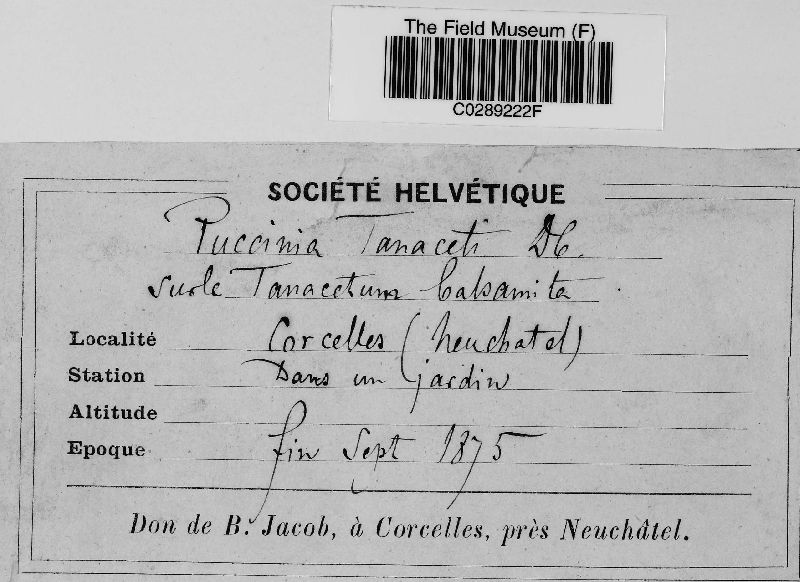 The Field Museum (F)
C0289222F
SOCIÉTÉ HELVÉTIQUE
Puccinia Tanaceti DC.
sur le Tanacetum balsamita
Localité Corcelles (Neuchatel)
Station Dans un jardin
Altitude
Epoque fin Sept 1875
Don de B. Jacob, à Corcelles, près Neuchâtel.